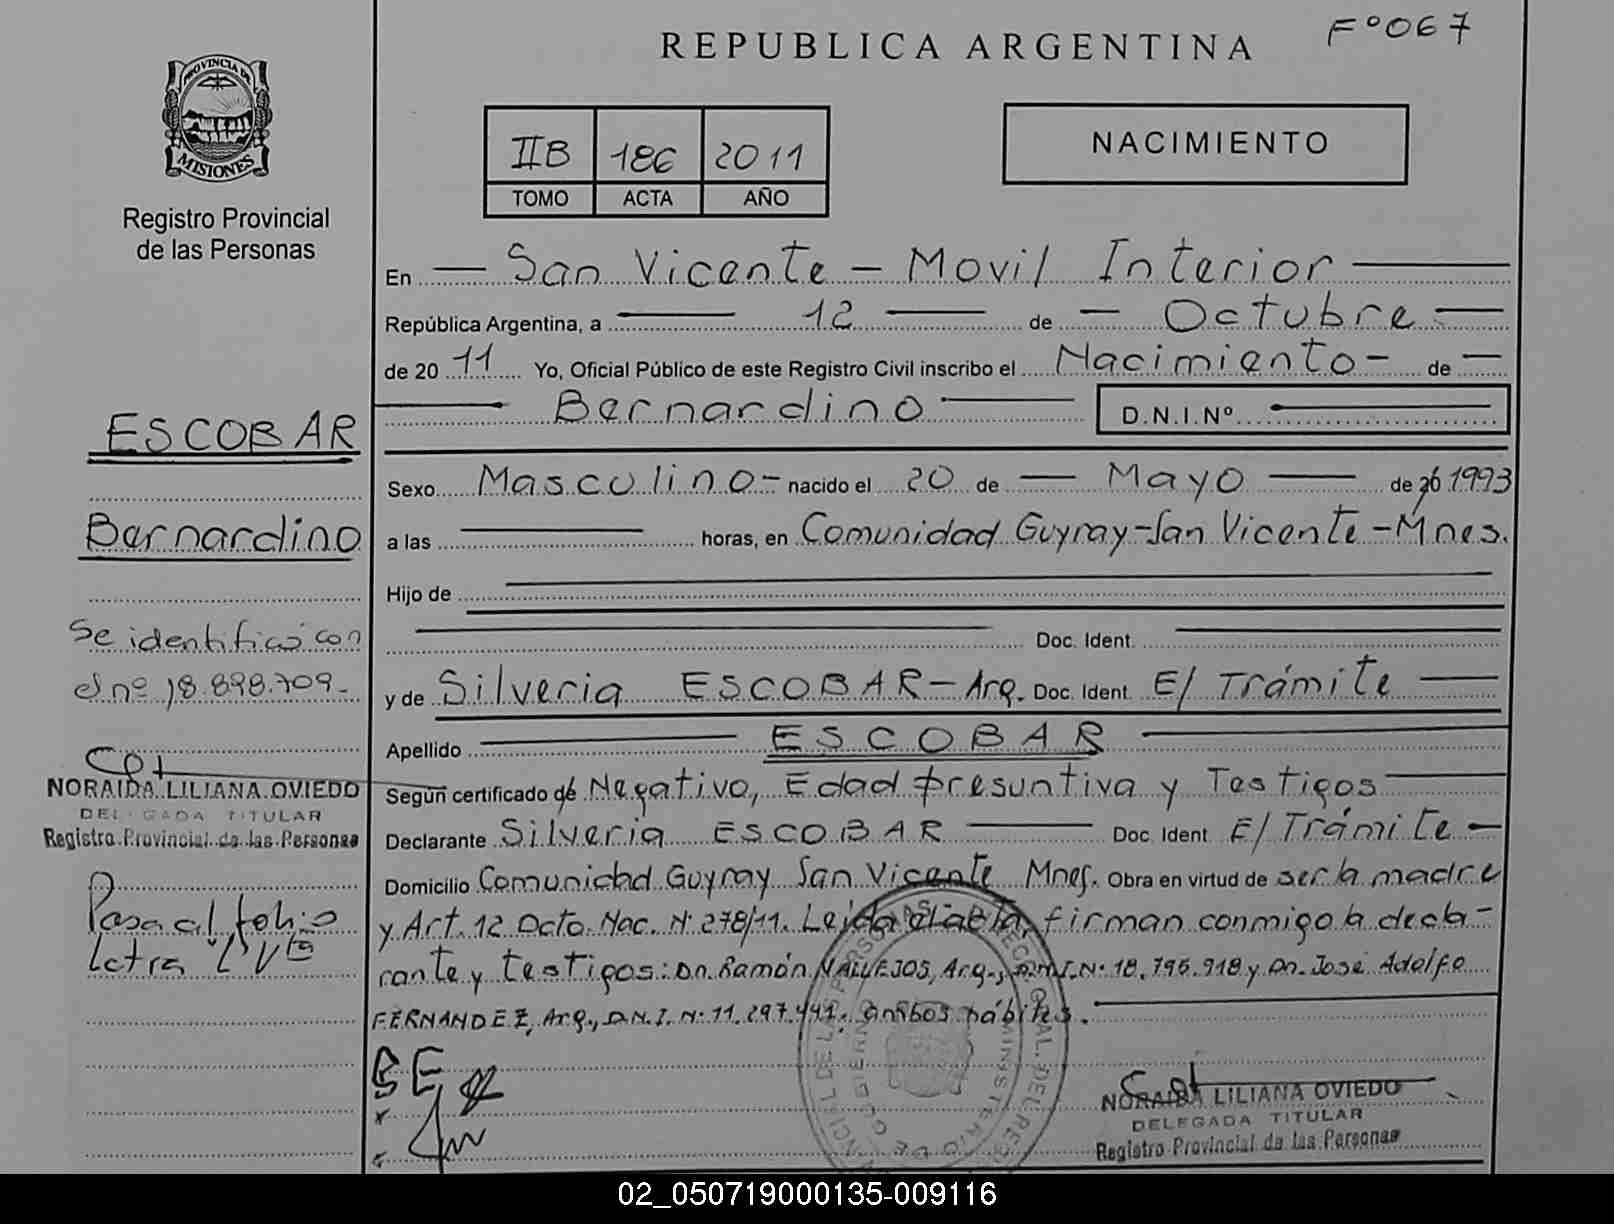 REPUBLICA ARGENTINA
Fº 067
PROVINCIA DE
MISIONES
Registro Provincial
de las Personas
IIB 186 2011
TOMO ACTA AÑO
NACIMIENTO
En — San Vicente - Movil Interior —
República Argentina, a — 12 — de — Octubre —
de 20 11 Yo, Oficial Público de este Registro Civil inscribo el Nacimiento - de —
— Bernardino — D.N.I.Nº —
Sexo Masculino - nacido el 20 de — Mayo — de 20 1993
a las — horas, en Comunidad Guyray - San Vicente - Mnes.
Hijo de —
— Doc. Ident. —
y de Silveria ESCOBAR - Arg. Doc. Ident. E/ Trámite —
Apellido — ESCOBAR —
Según certificado de Negativo, Edad presuntiva y Testigos —
Declarante Silveria ESCOBAR — Doc. Ident. E/ Trámite —
Domicilio Comunidad Guyray San Vicente Mnes. Obra en virtud de ser la madre
y Art. 12 Dcto. Nac. Nº 278/11. Leída el acta, firman conmigo la decla-
rante y testigos: Dn. Ramón VALLEJOS, Arg., D.N.I. Nº 18.795.918 y Dn. José Adolfo
FERNANDEZ, Arg., D.N.I. Nº 11.297.441. ambos hábiles. —
BE
NORAIDA LILIANA OVIEDO
DELEGADA TITULAR
Registro Provincial de las Personas
ESCOBAR
Bernardino
Se identificó con
el nº 18.898.709.-
NORAIDA LILIANA OVIEDO
DELEGADA TITULAR
Registro Provincial de las Personas
Pasa al folio
letra
02_050719000135-009116